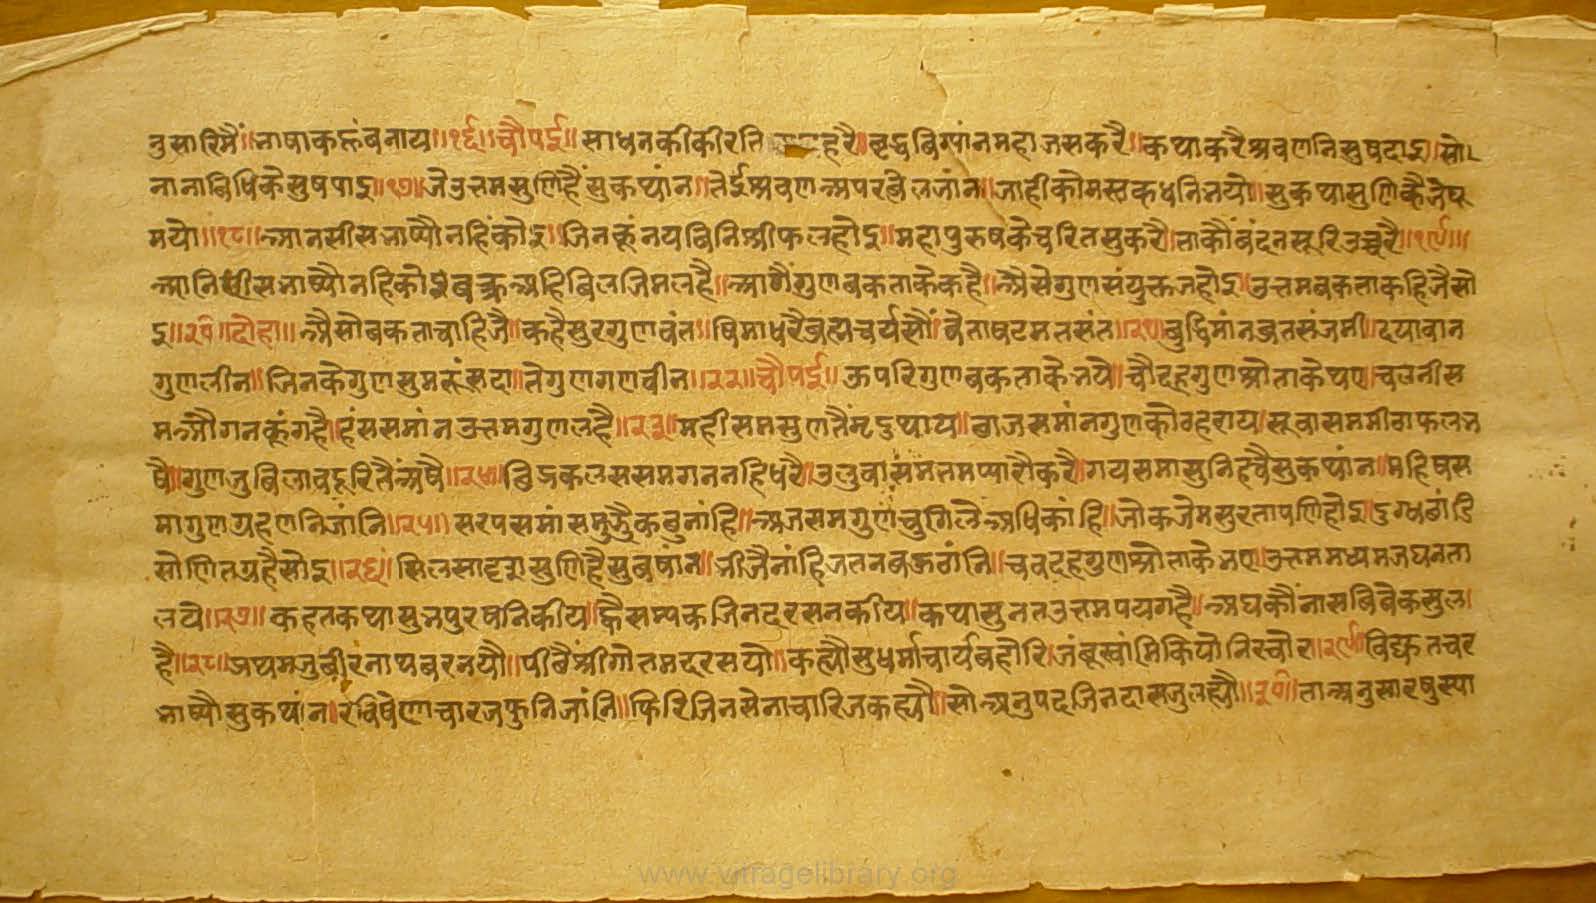 नुसारिमैं॥भाषाकहूंबनाय॥१६॥चौपई॥साधनकीकीरति हरै॥वृद्धविग्यांनमहाजसकरै॥कथाकरैश्रवणनिसुषदाइ॥सो
नानाबिधिकेसुषपाइ॥१७॥जेउत्तमसुणिहैंसुकथांन॥तेईश्रवणअपरबेलजांन॥जाहीकौमस्तकधनिनयो॥सुकथासुणिकै
मयो॥१८॥आनसीसभाष्यौनहिंकोइ॥जिनकूंनयबिनिश्रीफलहोइ॥महापुरुषकेचरितसुकरै॥ताकौंबंदनसूरिउच्चरै॥१९॥
आनिसीसभाष्यौनहिकोइ बिलजिमलहै॥आगैंगुणबकताकेकहै॥अैसेगुणसंयुक्तजहोइ॥उत्तमबकताकहिजैसो
इ॥२०॥दोहा॥अैसोबकताचाहिजै॥कहैसुरगुणवंत॥षिमाधरैब्रह्मचर्यसौं॥बेताषटमतसंत॥२१॥बुद्धिमांनब्रतसंजमी॥दयावान
गुणलीन॥जिनकेगुणसुमरूंसदा॥तेगुणगणवीन॥२२॥चौपई॥ऊपरिगुणबकताकेभये॥चौदहगुणश्रोताकेथए॥चलनीस
मऔगनकूंगहै॥हंससमांनउत्तमगुणलहै॥२३॥महीसमसुणतैंमृदुथाय॥बाजसमांनगुणकौ हराय॥सूवासममीठाफल
षै॥गुणजु ॥२४॥ छिद्रकलससमगननहिधरै॥ प्यारौकरै॥गयसमासुनिह्वैसुकथांन॥महिषस
मागुणग्रहणनिजांनि॥२५॥सरपसमां नांहि॥अजसमगुणंचुगिले अधिकांहि॥जोकजेमसुरतापणिहोइ॥दुग्धछांडि
सोणितग्रहैसोइ॥२६॥सिलसादृशसुणिहैसुबषांन॥भीजैनांहि ठांनि॥चवदहगुणश्रोताकेभए॥उत्तममध्यमजघनता
लये॥२७॥कहतकथासुभपुरषनिकीय॥ह्वैसम्यकजिनदरसनकीय॥कथासुनतउत्तमपयगहै॥अघकौंनासबिबेकसुल
है॥२८॥प्रथमजुवीरनाथबरनयौ॥पीछैंश्रीगोतमदरसयो॥कह्यौसुधर्माचार्यबहोरि॥जंबूस्वांमिकियोनिरचोर॥२९॥विद्युतचर
भाष्यौसुकथांन॥रविषेणाचारजफुनिजांनि॥फिरिजिनसेनाचारिजकह्यौ॥सोअनुपदजिनदासजुलह्यौ॥३०॥ताअनुसार
www.vitragelibrary.org